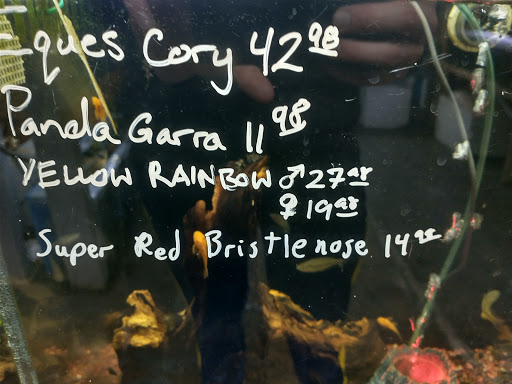 Eques Cory 42 98
Panda Garra 11 98
YELLOW RAINBOW ♂ 27 98
♀ 19 98
Super Red Bristlenose 14 98